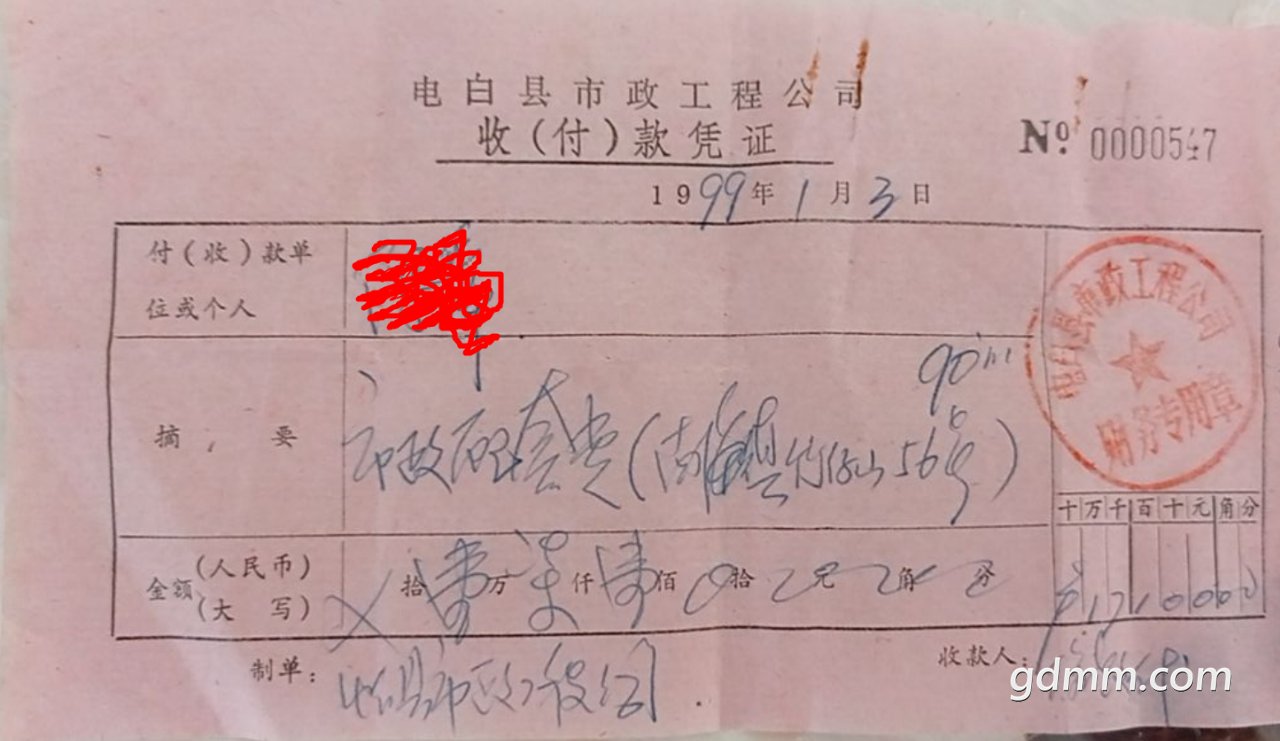 电白县市政工程公司
收(付)款凭证
№ 0000547
1999年1月3日
付(收)款单
位或个人
电白县市政工程公司
财务专用章
90m
摘 要
市政配套费(南海镇竹仔山56号)
十万千百十元角分
金额(人民币)(大写)
拾壹万柒仟壹佰0拾 元 角 分
¥1710000
制单:
电白县市政工程公司
收款人:
gdmm.com